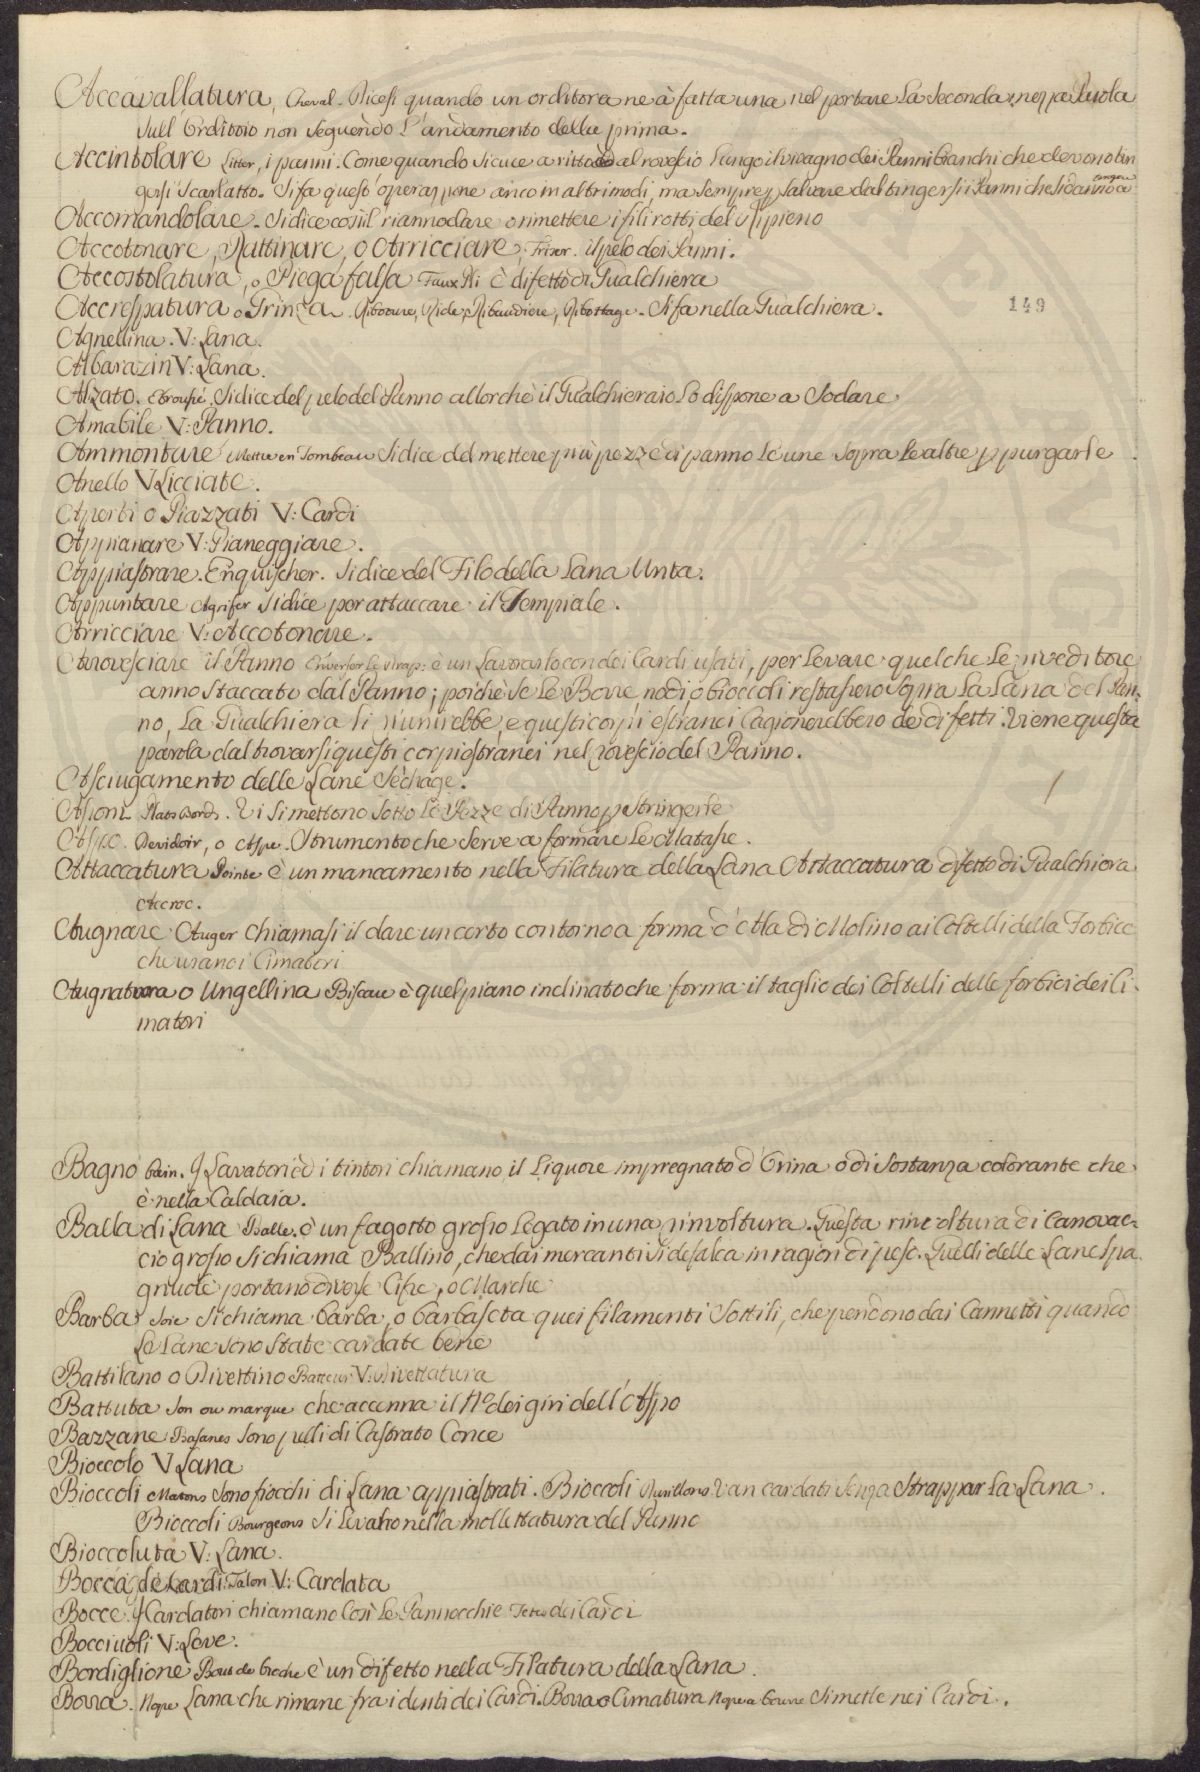 Accavallatura, Cheval. Dicesi quando un orditora ne à fatta una nel portare La Seconda mezza Paiola
Sull'Orditoio non Seguendo L'andamento della prima.
Accintolare Litter, i panni. Come quando si cuce a ritto al rovescio Lungo il vivagno dei Panni bianchi che devono tin
gersi Scarlatto. Si fa quest'operazione anco in altri modi, ma sempre p salvare dal tingersi i Panni che si danno a tingere
Accomandolare. Si dice così il riannodare o rimettere i fili rotti del Ripieno
Accotonare, Rattinare, o Arricciare, Friser. il pelo dei Panni.
Accostolatura, o Piega falsa Faux Pli è difetto di Gualchiera
Accrespatura o Grinza. Ribodure, Ride, Ribaudiere, Ribottage. Si fa nella Gualchiera.
149
Agnellina. V: Lana.
Albarazin V: Lana.
Alzato. Ebroussé, Si dice del pelo del Panno allorchè il Gualchieraio Lo dispone a Sodare
Amabile V: Panno.
Ammontare Mettre en Tombeau Si dice del mettere più pezze di panno Le une Sopra Le altre p purgarle
Anello V Licciate.
Aperti o Piazzati V: Cardi
Appianare V: Pianeggiare.
Appiastrare. Enquischer. Si dice del Filo della Lana Unta.
Appuntare Agrifer Si dice per attaccare il Tempiale.
Arricciare V: Accotonare.
Arrovesciare il Panno Enverser Le drap: è un Lavorarlo con dei Cardi usati, per Levare quel che Le riveditore
anno staccato dal Panno; poichè se Le Borre nodi, o bioccoli restassero Sopra La Lana del Pan-
no, La Gualchiera li riunirebbe, e questi corpi estranei Cagionerebbero de difetti. Viene questa
parola dal trovarsi questi corpi estranei nel rovescio del Panno.
Asciugamento delle Lane Sèchage.
Assoni Plats bords. Vi Si mettono Sotto Le Pezze di Panno p Stringerle
Aspo. Devidoir, o Aspe. Strumento che Serve a formare Le Matasse.
Attaccatura Pointe è un mancamento nella Filatura della Lana Attaccatura difetto di Gualchiera
Accroc.
Augnare Auger Chiamasi il dare un certo contorno a forma d'Ala di Molino ai Coltelli della Forbice
che usano i Cimatori
Augnatura o Ungellina Biseau è quel piano inclinato che forma il taglio dei Coltelli delle forbici dei Ci-
matori
Bagno bain. I Lavatori ed i tintori chiamano il Liquore impregnato d'Orina o di Sostanza colorante che
è nella Caldaia.
Balla di Lana Balle. è un fagotto grosso Legato in una rinvoltura. Questa rinvoltura di Canovac-
cio grosso si chiama Ballino, che dai mercanti Si desalca in ragion di peso. Quelli delle Lane Spa
gnuole portano diverse Cifre, o Marche
Barba Soie Si chiama barba, o barbascta quei filamenti Sottili, che pendono dai Cannetti quando
Le Lane sono State cardate bene
Battilano o Divettino Batteur V: Divettatura
Battuta Son ou marque che accenna il No dei giri dell'Aspo
Bazzane Basanes Sono pelli di Castrato Conce
Bioccolo V Lana
Bioccoli Matons Sono fiocchi di Lana appiastrati. Bioccoli Van cardati Senza Strappar La Lana.
Bioccoli Bourgeons Si Levano nella mollettatura del Panno
Bioccoluta V: Lana.
Bocca de Cardi: Talon V: Cardata
Bocce. I Cardatori chiamano Così Le Pannocchie Tetes dei Cardi
Bocciuoli V: Leve.
Bordiglione Bout de broche è un difetto nella Filatura della Lana.
Borra. Nope Lana che rimane fra i denti dei Cardi. Borra o Cimatura Nope a bourre Si mette nei Cardi.